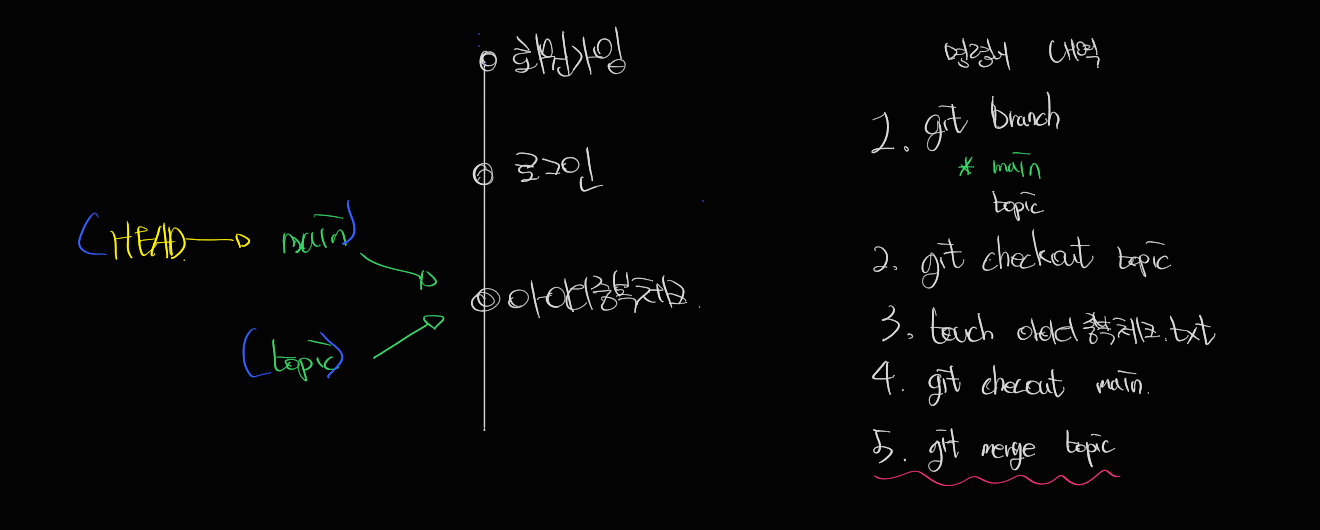 회원가입
로그인
(HEAD → main)
아이디중복체크.
(topic)
명령어 내역
1. git branch
* main
topic
2. git checkout topic
3. touch 아이디중복체크.txt
4. git checout main.
5. git merge topic